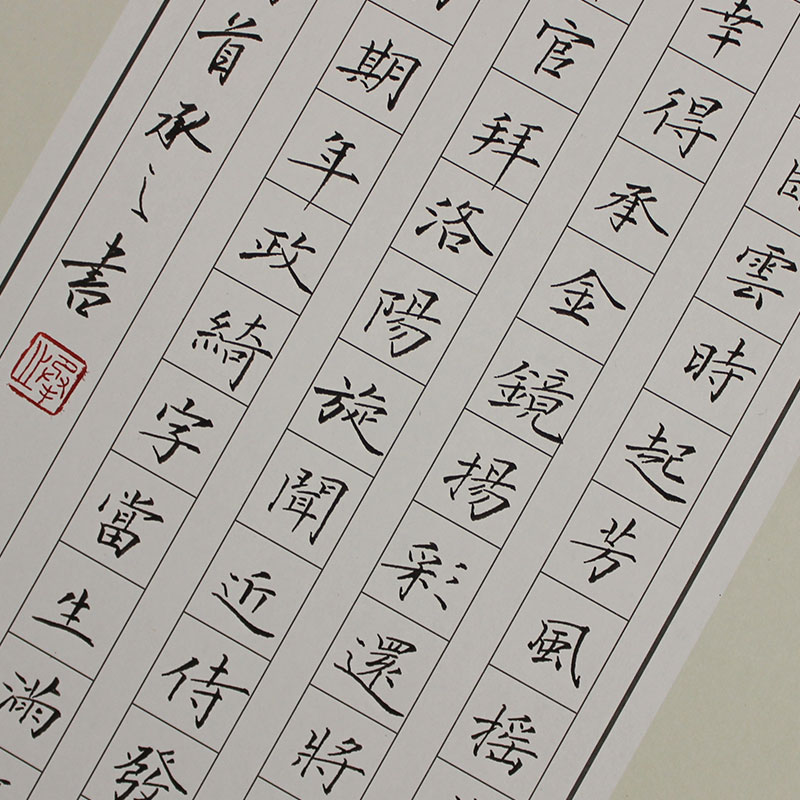 雲時起芳風搖
幸得承金鏡揚彩還將
官拜洛陽旋聞近侍發
期年政綺字當生滿
首承之書